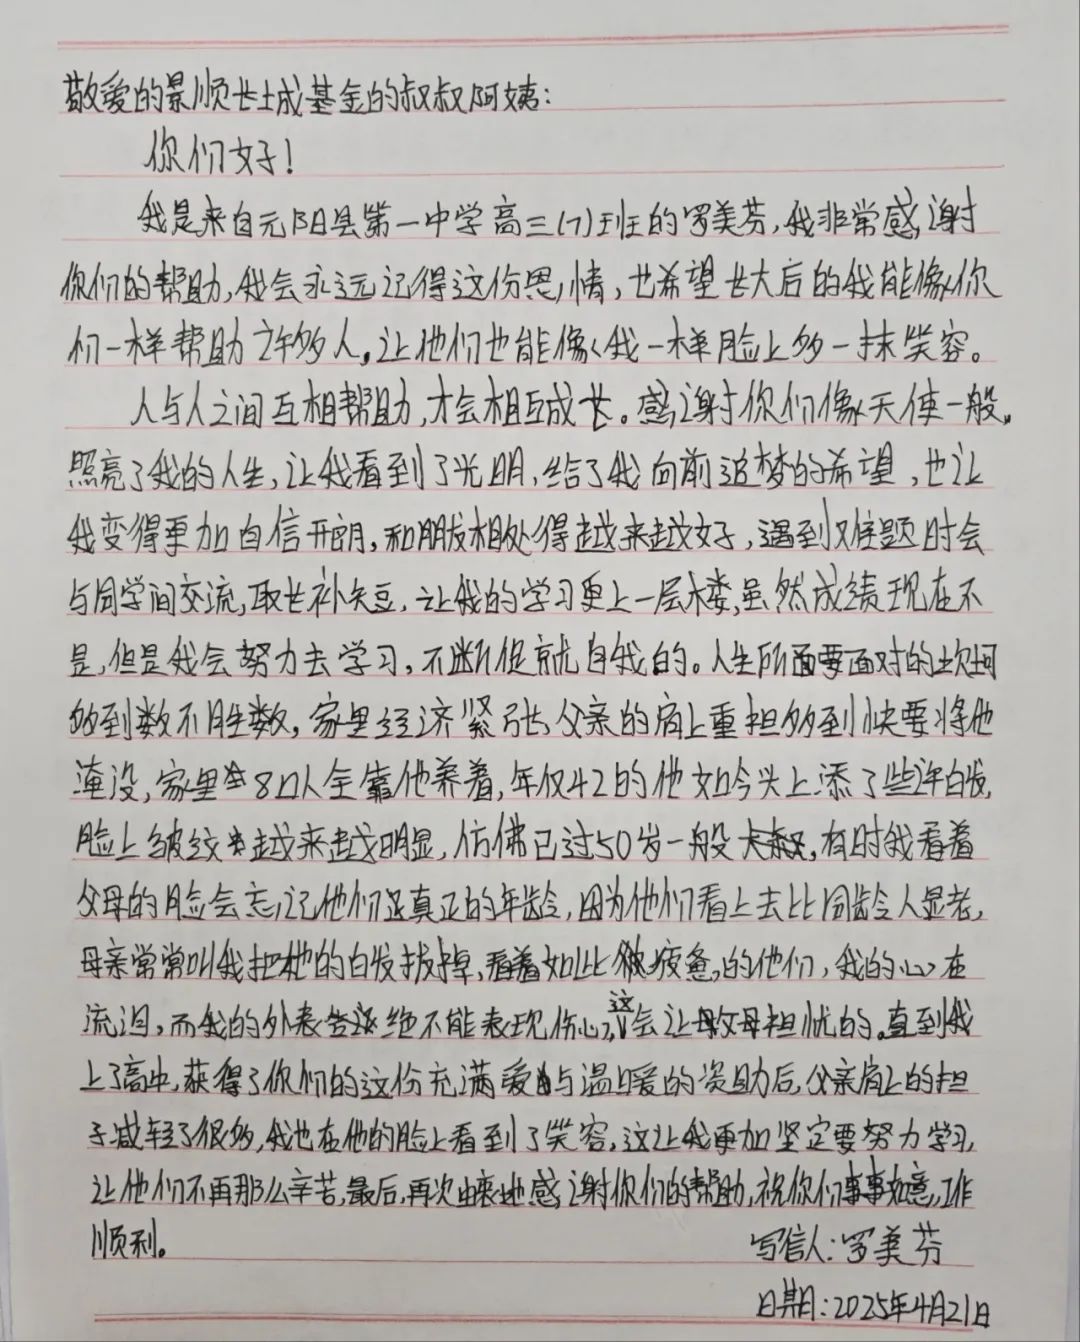 敬爱的景顺长城基金的叔叔阿姨:
你们好!
我是来自元阳县第一中学高三(7)班的罗美芬,我非常感谢
你们的帮助,我会永远记得这份恩情,也希望长大后的我能像你
们一样帮助许多人,让他们也能像我一样脸上多一抹笑容。
人与人之间互相帮助,才会相互成长。感谢你们像天使一般,
照亮了我的人生,让我看到了光明,给了我向前追梦的希望,也让
我变得更加自信开朗,和朋友相处得越来越好,遇到难题时会
与同学间交流,取长补短,让我的学习更上一层楼,虽然成绩现在不
是,但是我会努力去学习,不断促就自我的。人生所面要面对的坎坷
多到数不胜数,家里经济紧张,父亲的肩上重担多到快要将他
淹没,家里8口人全靠他养着,年仅42的他如今头上添了些许白发,
脸上皱纹越来越明显,仿佛已过50岁一般,有时我看着
父母的脸会忘记他们真正的年龄,因为他们看上去比同龄人显老,
母亲常常叫我把她的白发拔掉,看着如此疲惫的他们,我的心在
流泪,而我的外表绝不能表现伤心,这会让父母担忧的。直到我
上了高中,获得了你们的这份充满爱与温暖的资助后,父亲肩上的担
子减轻了很多,我也在他的脸上看到了笑容,这让我更加坚定要努力学习,
让他们不再那么辛苦,最后,再次由衷地感谢你们的帮助,祝你们事事如意,工作
顺利。
写信人:罗美芬
日期:2025年4月21日